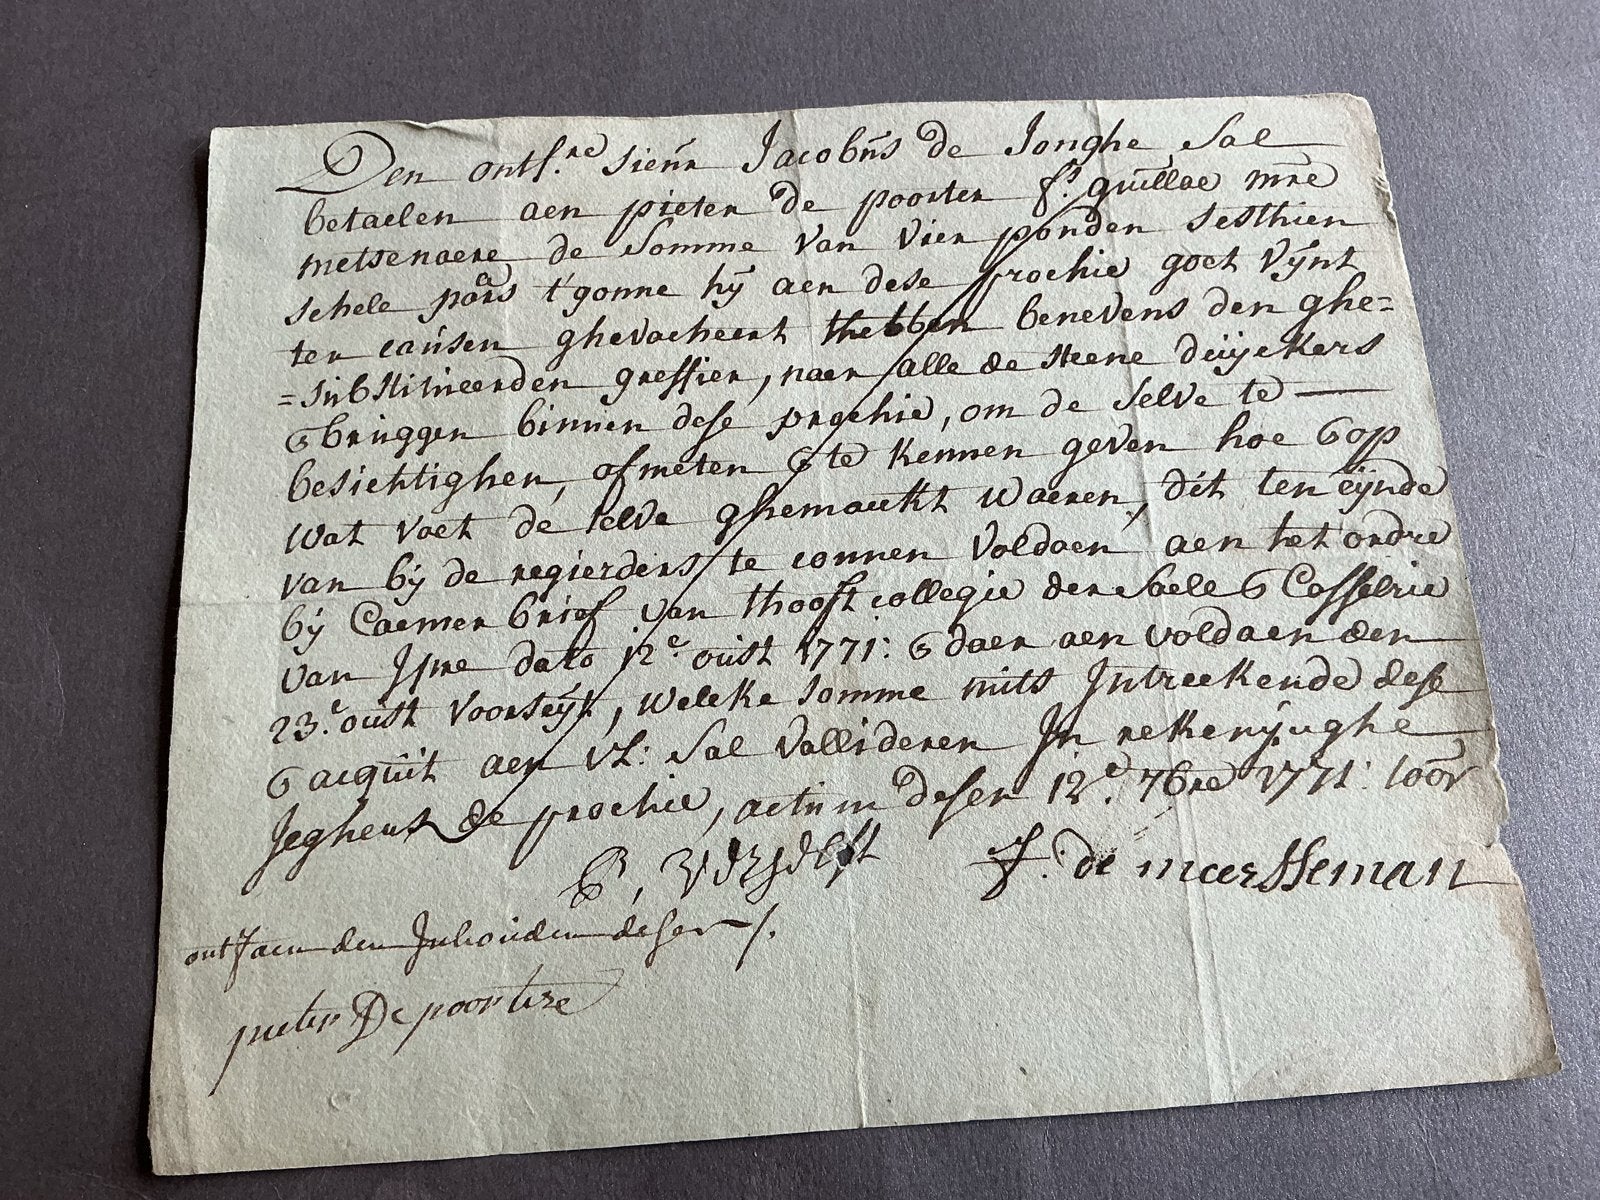 Den ontf.re sieur Jacobus de Jonghe Sal
betaelen aen pieter de poorter f.s guillae mre
metsenaere de Somme van vier ponden sesthien
schele pars t'gonne hij aen dese prochie goet vijnt
ter causen ghevacheert thebben benevens den ghe=
=substitueerden greffier, naer alle de steene duijckers
& bruggen binnen dese prochie, om de selve te
besichtighen, afmeten & te kennen geven hoe & op
wat voet de selve ghemaeckt waeren, dit ten eijnde
van bij de regierders te connen voldaen aen het ordre
bij Caemer brief van thooft collegie der Saele & Casselrie
van Ipre dato 12.e oust 1771: & daer aen voldaen den
23.e oust voorseijt, welcke somme mits Intreckende dese
& acquit aen vL: Sal valideren In rekenijnghe
Jeghens de prochie, actum desen 12.e 7bre 1771: toor
J. de meersseman
ontfaen den Inhouden deser
pieter De poortere